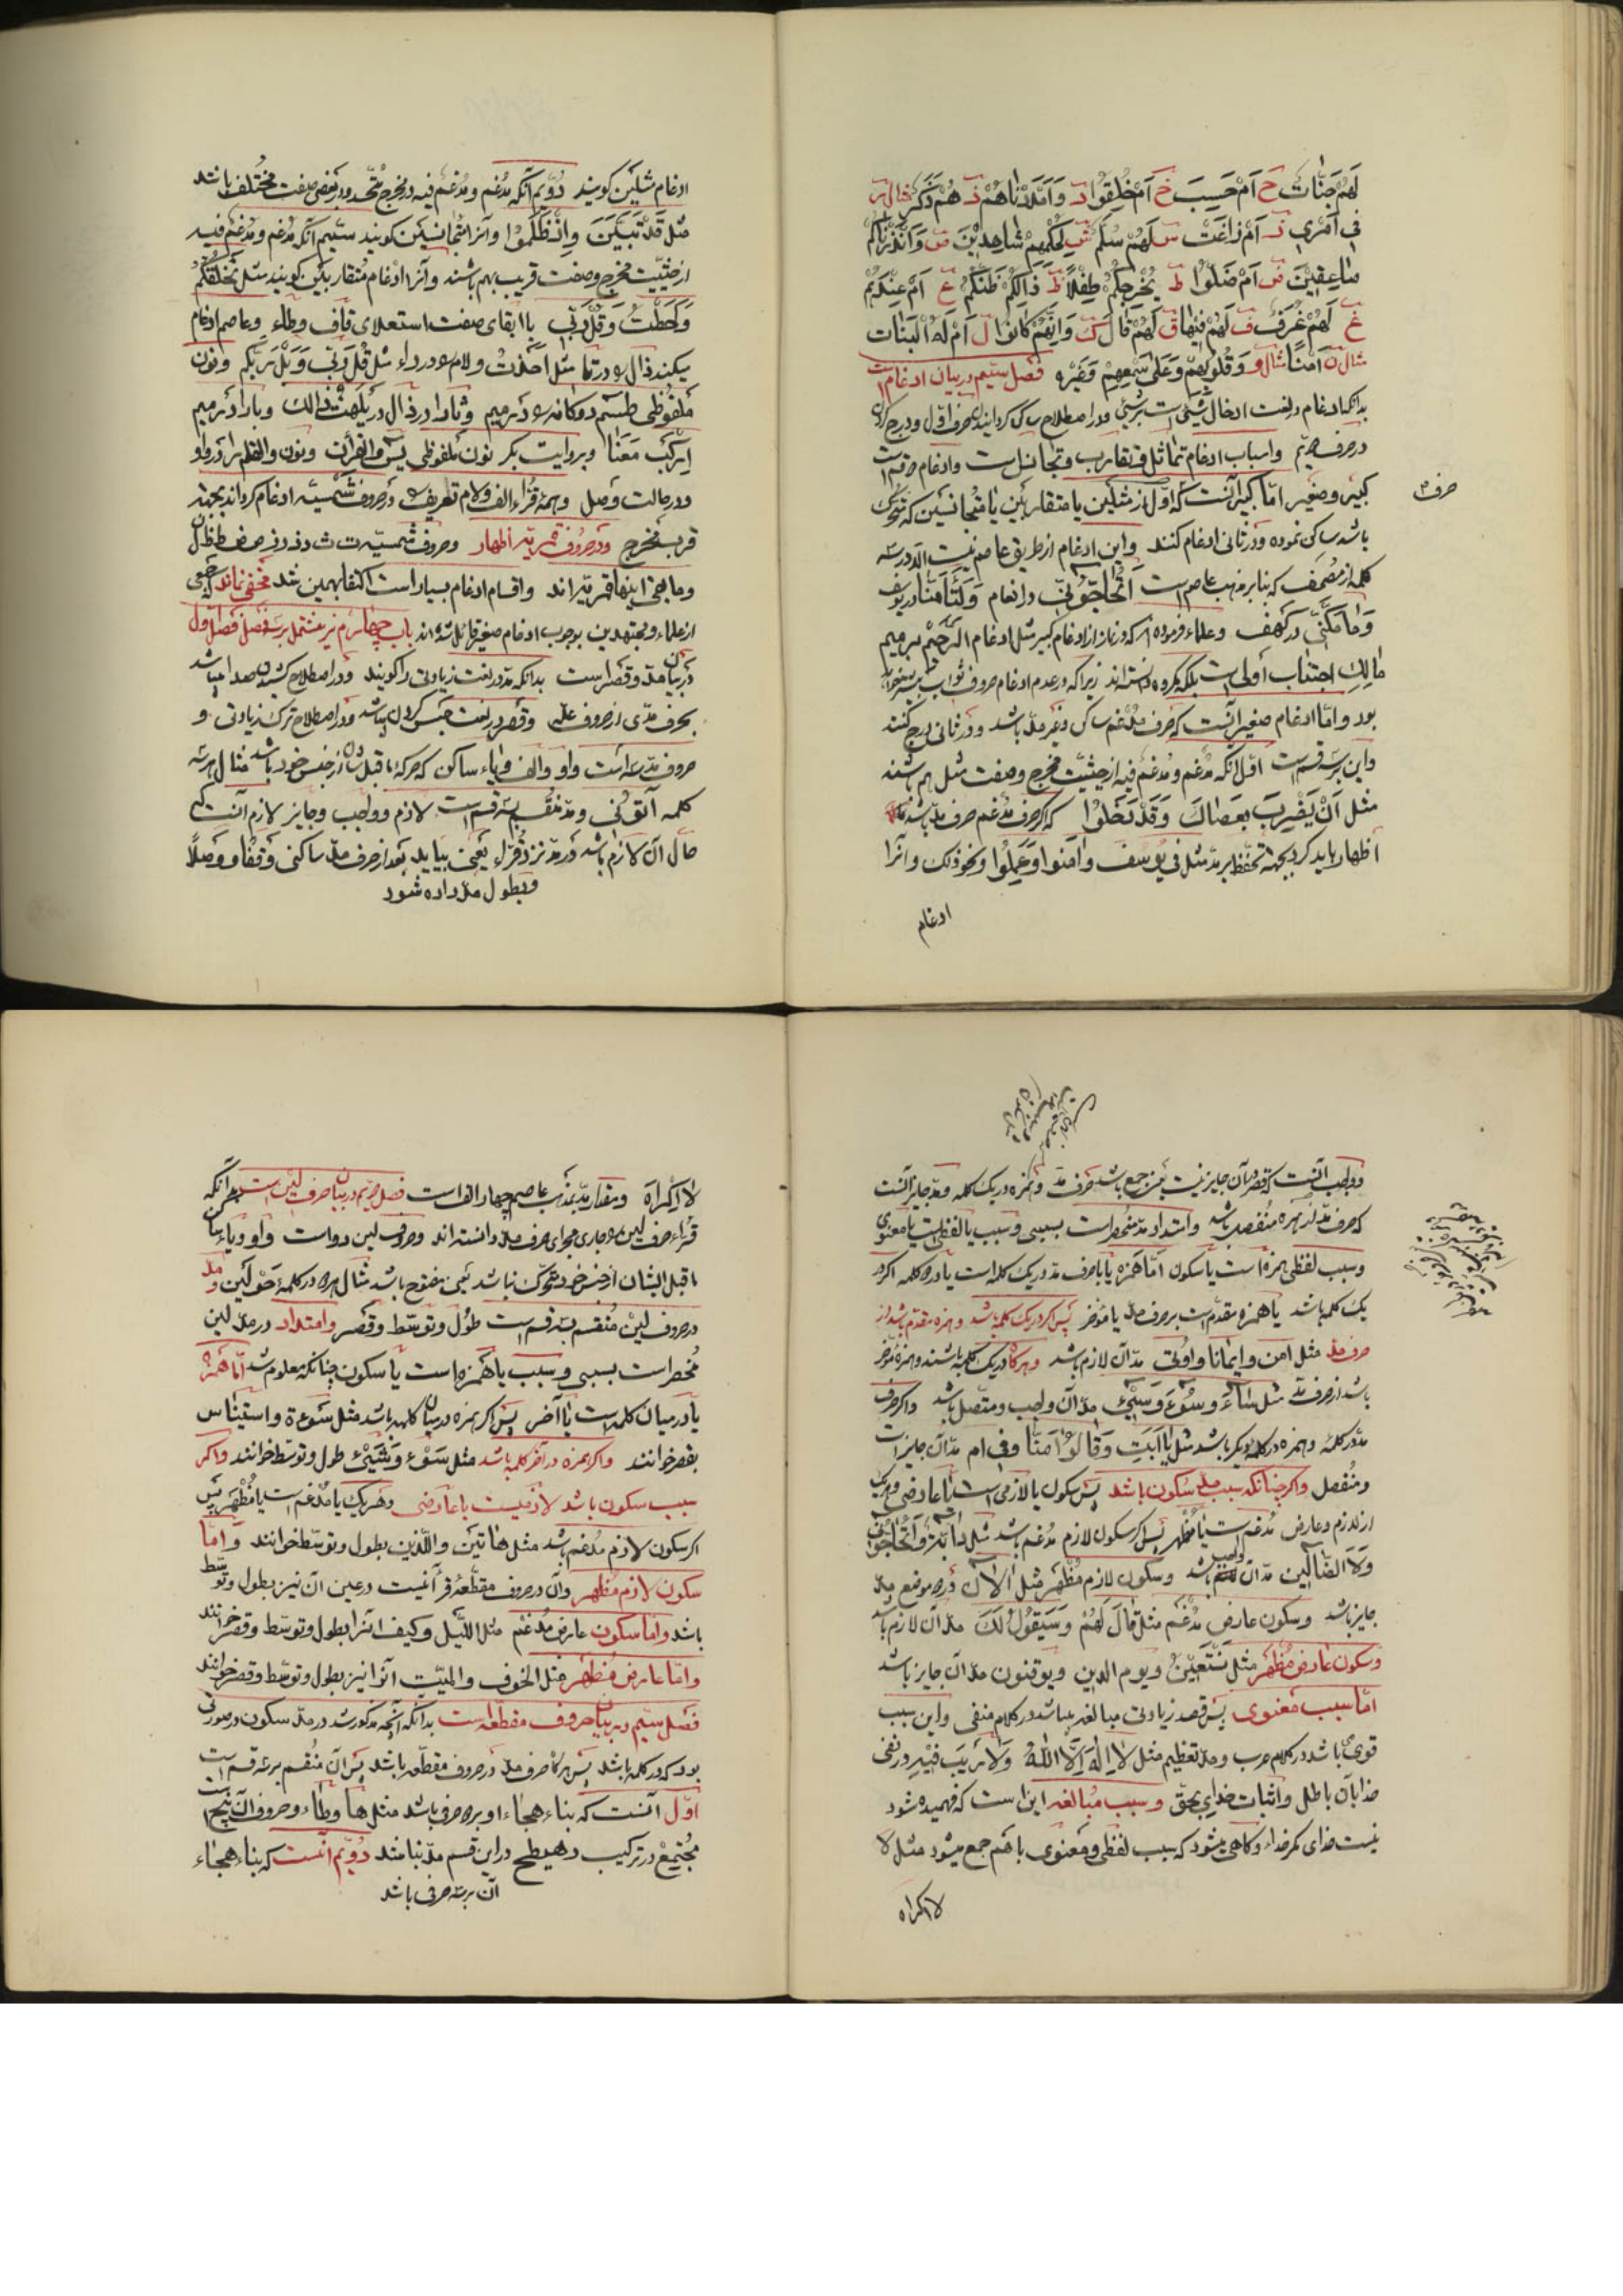 لَهُمْ جَنّٰاتٌ ح اَمْ حَسِبَ خ اَمْ خُلِقُوا د وَاَمْدَدْنٰاهُمْ ذ هُمْ ذِكْرِ مثال ر
فى اَمْرِى ز اَمْ زٰاغَتْ س لَهُمْ سُلَّم ش لِحُكْمِهِمْ شٰاهِدِيْنَ ص وَاَنْذَرْنٰاكُمْ
صٰاعِقَةً ض اَمْ ضَلّوُا ط يُخْرِجُكُمْ طِفْلاً ظ ذٰلِكُمْ ظَنُّكُمْ ع اَمْ عِنْدَهُمْ
غ لَهُمْ غُرَفٌ ف لَهُمْ فيٖهٰا ق لَهُمْ قٰالَ ك وَاِنَّهُمْ كٰانُوا ل اَمْ لَهُ الْبَنٰات
مثال ن اٰمَنّا مثال و وَقُلُوبِهِمْ وَعَلىٰ سَمْعِهِمْ وَغَيْره فصل سيّم در بيان ادغام است
بدانكه ادغام در لغت ادخال شئى است بر شئى ودر اصطلاح ساكن كردانيدن حرف اوّل ودرج كردن
در حرف دويّم واسباب ادغام تماثل وتقارب وتجانس است وادغام دو قسم است
كبير وصغير امّا كبير آنست كه اوّل از مثلين يا متقاربين يا متجانسين كه متحرك
حرف
باشد ساكن نموده ودر ثانى ادغام كنند واين ادغام از طريق عاصم نيست الّا در سه
كلمه از مصحف كه بنا بر مذهب عاصم است اَتُحٰاجّوُنّى در انعام وَلَا تَأْمَنّا در يوسف
وَمٰا مَكَّنّى در كهف وعلماء فرموده‌اند كه در نماز از ادغام كبير مثل ادغام الرّحيم بر ميم
مٰالِكِ اجتناب اَولى است بلكه مكروه دانسته‌اند زيرا كه در عدم ادغام حروف ثواب بيشتر خواهد
بود وامّا ادغام صغير آنست كه حرف مدغم ساكن وغير مدّ باشد ودر ثانى درج كنند
واين بر سه قسم است اوّل آنكه مدغم ومدغم فيه از حيثيّت مخرج وصفت مثل هم باشند
مثل اَنْ يَضْرِبَ بعَصٰاكَ وَقَدْ دَخَلُوا كه اكر حرف مُدغم حرف مدّ باشد
اظهار بايد كرد بجهة تحفّظ بر مدّ مثل فى يُوسُفَ وٰامَنوا وَعَمِلُوا ونحو ذلك وآنرا
ادغام
ادغام مثلين كويند دُوّيم آنكه مدغم ومُدغم فيه در مخرج متّحد ودر بعض صفت مختلف باشند
مثل قَدْ تَبَيَّنَ وَاِذْ ظَلَمُوا وآنرا متجانسين كويند سيّم آنكه مدغم ومدغم فيه
از حيثيّت مخرج وصفت قريب بهم باشند وآنرا ادغام متقاربين كويند مثل نَخْلُقْكُمْ
وَاَحَطْتُ وَقُلْ رَبِّ با ابقاى صفت استعلاى قاف وطاء وعاصم ادغام
ميكند ذال را در تا مثل اَخَذْتُ ولام را در راء مثل قُلْ رَبّى وَبَلْ رَبُّكُمْ ونون
ملفوظى طسٓمٓ دو كانه را در ميم وثا را در ذال در يَلْهَثْ ذٰالِكَ وبا را در ميم
اِرْكَبْ مَعَنٰا وبروايت بكر نون ملفوظى يٰسٓ والقرآن ونون والقلم را در واو
ودر حالت وصل وهمهٔ قرّاء الف ولام تعريف را در حروف شمسيّه ادغام كرده‌اند بجهة
قرب مخرج ودر حروف قمريّه اظهار وحروف شمسيّه ت ث د ذ ر ز س ش ص ض ط ظ ل ن
ومابقى اينها قمريّه‌اند واقسام ادغام بسيار است اكتفا بهمين شد مخفى نماند كه جمعى
از علماء ومجتهدين بوجوب ادغام صغير قائل شده‌اند باب چهارم نيز مشتمل بر سه فصل فصل اول
در بيان مدّ وقصر است بدانكه مدّ در لغت زيادتى را كويند ودر اصطلاح كشيدن صدا باشد
بحرف مدّى از حروف علّه وقصر در لغت حبس كردن باشد ودر اصطلاح ترك زيادتى و
حروف مدّ سه است واو والف وياء ساكن كه حركهٔ ماقبل شان از جنس خود باشد مثال هر سه
كلمه اٰتوُنى ومدّ منقسم بسه قسم است لازم وواجب وجايز لازم آنست كه
حال آن لازم باشد در مدّ نزد قرّاء يعنى بيايد بعد از حرف مدّ ساكنى وقفاً ووصلاً
وبطول مدّ داده شود
وواجب آنست كه قصر آن جايز نيست يعنى جمع باشد حرف مدّ وهمزه در يك كلمه ومدّ جايز آنست
كه حرف مدّ از همزه منفصل باشد وامتداد مدّ منحصر است بسببى وسبب يا لفظيست يا معنوى
وسبب لفظى همزه است يا سكون امّا همزه يا با حرف مدّ در يك كلمه است يا در دو كلمه اكر در
يك كلمه باشد يا همزه مقدّم است بر حرف مدّ يا مؤخر پس اكر در يك كلمه باشد وهمزه مقدّم باشد از
حرف مدّ مثل اٰمن وايمٰانا واوُتى مدّ آن لازم باشد وهركاه در يك كلمه باشند وهمزه مؤخر
باشد از حرف مدّ مثل شٰاءَ وسُوٓءَ وَسٓيئَ مدّ آن واجب ومتّصل باشد واكر حرف
مدّ در كلمه وهمزه در كلمهٔ ديكر باشد مثل يٰا اَبَتِ وَقٰالُوٓا اٰمَنّٰا وفى ام مدّ آن جايز است
ومُنفصل واكر چنانكه سبب مدّ سكون باشد پس سكون يا لازمى است يا عارضى وهر يك
از لازم وعارض مُدغم است يا مُظهر پس اكر سكون لازم مُدغم باشد مثل دٰابّة واَتُحٰاجّوُنّى
وَلَا الضّٰالّين مدّ آن واجب باشد وسكون لازم مُظْهَر مثل اٰلْاٰنَ در دو موضع مدّ
جايز باشد وسكون عارض مُدْغَم مثل قٰالَ لَهُمْ وَسَيَقُولُ لَكَ مدّ آن لازم باشد
وسكون عارض مُظْهَر مثل نَسْتَعينُ ويوم الدين ويوقنون مدّ آن جايز باشد
امّا سبب معنوى پس قصد زيادتى مبالغه ميباشد در كلام منفى واين سبب
قوى باشد در كلام عرب ومدّ تعظيم مثل لا اِلٰهَ اِلَّا اللّٰهُ وَلٰا رَيبَ فيٖهِ در نفى
خدايان باطل واثبات خداى بحق وسبب مُبٰالغه اين است كه فهميده شود
نيست خداى مكر خداء وكاهى ميشود كه سبب لفظى ومعنوى باهم جمع ميشود مثل لا
لا اكراه
لا اِكْرٰاهَ ومقدار مدّ بمذهب عاصم چهار الف است فصل دويّم در بيان حرف لين است بدانكه
قرّاء حرف لين را جارى مجراى حرف مدّ دانسته‌اند وحروف لين دو است واو وياء ساكن
ماقبل ايشان از جنس خود متحرك نباشد يعنى مفتوح باشد مثال هر دو در كلمهٔ حَوْلَيْن ومدّ
در حروف لين مُنقسم بسه قسم است طُول وتوسّط وقصر وامتداد در مدّ لين
مُنحصر است بسببى وسبب يا همزه است يا سكون چنانكه معلوم شد امّا همزه
يا در ميان كلمه است يا آخر پس اكر همزه در ميان كلمه باشد مثل سَوْءة واستيئاس
بقصر خوانند واكر همزه در آخر كلمه باشد مثل سَوْءِ وَشَيْئ طول وتوسّط خوانند واكر
سبب سكون باشد لازميست يا عارضى وهر يك يا مدغم است يا مُظْهَر پس
اكر سكون لازم مُدغم باشد مثل هٰاتَيْنِ واللّذَين بطول وتوسّط خوانند وامّا
سكون لازم مُظهر وآن در حروف مقطّعهٔ قرآنيست در عين آن نيز بطول وتوسّط
باشد وامّا سكون عارض مُدغم مثل اللّيْل وكيف آنرا بطول وتوسّط وقصر خوانند
وامّا عارض مُظهر مثل الخوف والميّت آنرا نيز بطول وتوسّط وقصر خوانند
فصل سيّم در بيان حروف مقطّعه است بدانكه آنچه مذكور شد در مدّ سكون در صورتى
بود كه در كلمه باشد پس هركاه حرف مدّ در حروف مقطّعه باشد پس آن منقسم بر سه قسم است
اوّل آنست كه بناء هجاء او بر دو حرف باشد مثل هٰا وطٰاء وحروف آن پنج است
مُجْتَمِعْ در تركيب رهيطح در اين قسم مدّ بنامند دُوّيّم آنست كه بناء هجاء
آن بر سه حرف باشد